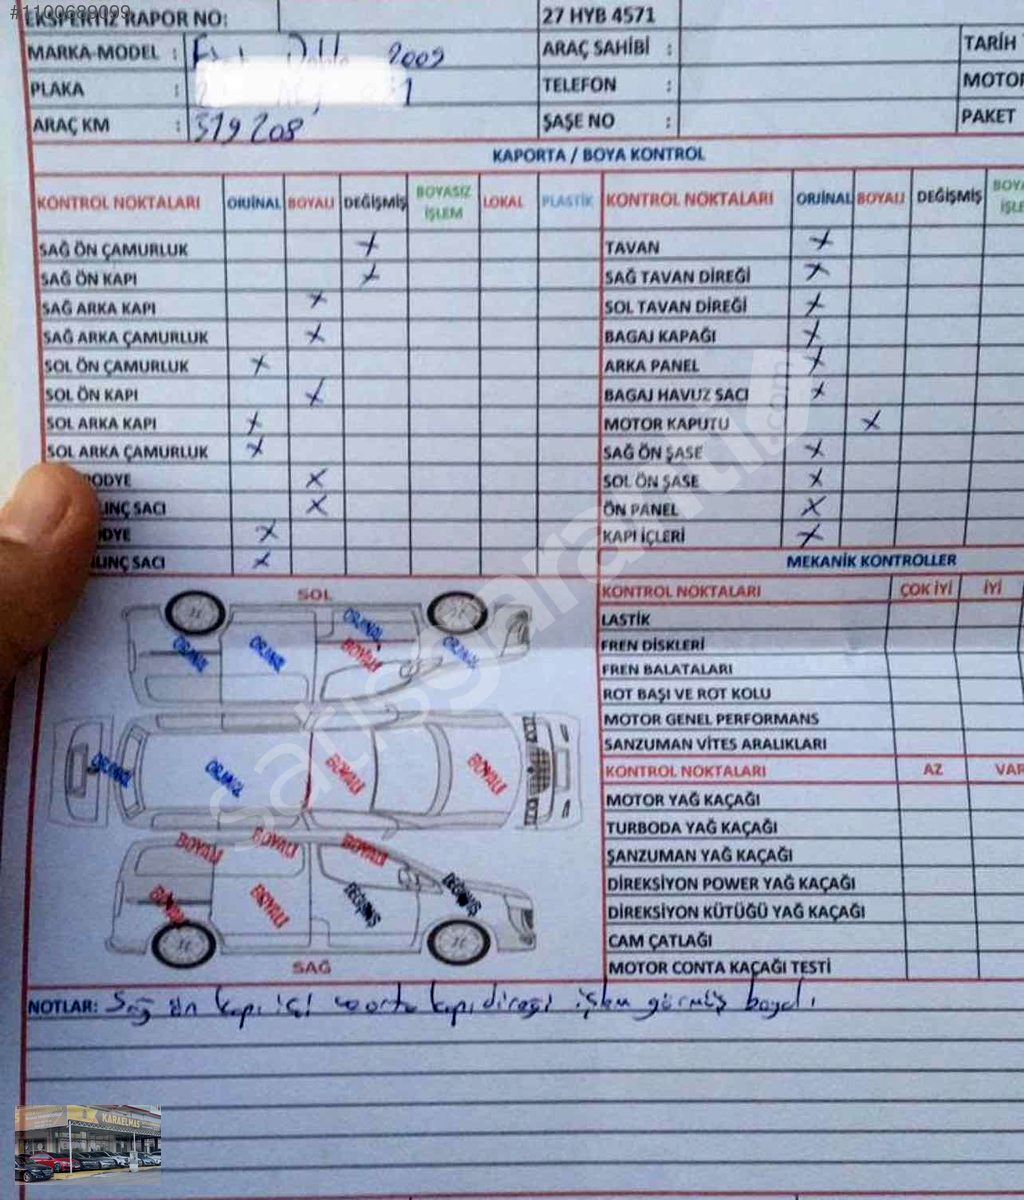 #1100689099
EKSPERTİZ RAPOR NO: 27 HYB 4571
MARKA-MODEL : Fiat Doblo 2009 ARAÇ SAHİBİ : TARİH
PLAKA : TELEFON : MOTOR
ARAÇ KM : 319208 ŞAŞE NO : PAKET
KAPORTA / BOYA KONTROL
KONTROL NOKTALARI ORJİNAL BOYALI DEĞİŞMİŞ BOYASIZ İŞLEM LOKAL PLASTİK KONTROL NOKTALARI ORJİNAL BOYALI DEĞİŞMİŞ
SAĞ ÖN ÇAMURLUK X TAVAN X
SAĞ ÖN KAPI X SAĞ TAVAN DİREĞİ X
SAĞ ARKA KAPI X SOL TAVAN DİREĞİ X
SAĞ ARKA ÇAMURLUK X BAGAJ KAPAĞI X
SOL ÖN ÇAMURLUK X ARKA PANEL X
SOL ÖN KAPI X BAGAJ HAVUZ SACI X
SOL ARKA KAPI X MOTOR KAPUTU X
SOL ARKA ÇAMURLUK X SAĞ ÖN ŞASE X
X SOL ÖN ŞASE X
SACI X ÖN PANEL X
X KAPI İÇLERİ X
SACI X MEKANİK KONTROLLER
SOL KONTROL NOKTALARI ÇOK İYİ İYİ
LASTİK
ORJİNAL ORJİNAL ORJİNAL BOYALI ORJİNAL FREN DİSKLERİ
FREN BALATALARI
ROT BAŞI VE ROT KOLU
MOTOR GENEL PERFORMANS
SANZUMAN VİTES ARALIKLARI
ORJİNAL ORJİNAL BOYALI BOYALI KONTROL NOKTALARI AZ VAR
MOTOR YAĞ KAÇAĞI
TURBODA YAĞ KAÇAĞI
BOYALI BOYALI BOYALI ŞANZUMAN YAĞ KAÇAĞI
BOYALI BOYALI DEĞİŞMİŞ DEĞİŞMİŞ DİREKSİYON POWER YAĞ KAÇAĞI
DİREKSİYON KÜTÜĞÜ YAĞ KAÇAĞI
CAM ÇATLAĞI
SAĞ MOTOR CONTA KAÇAĞI TESTİ
NOTLAR: Sağ ön kapı içi ve orta kapı direği işlem görmüş boyalı
satisgaranti.com
KARAELMAS